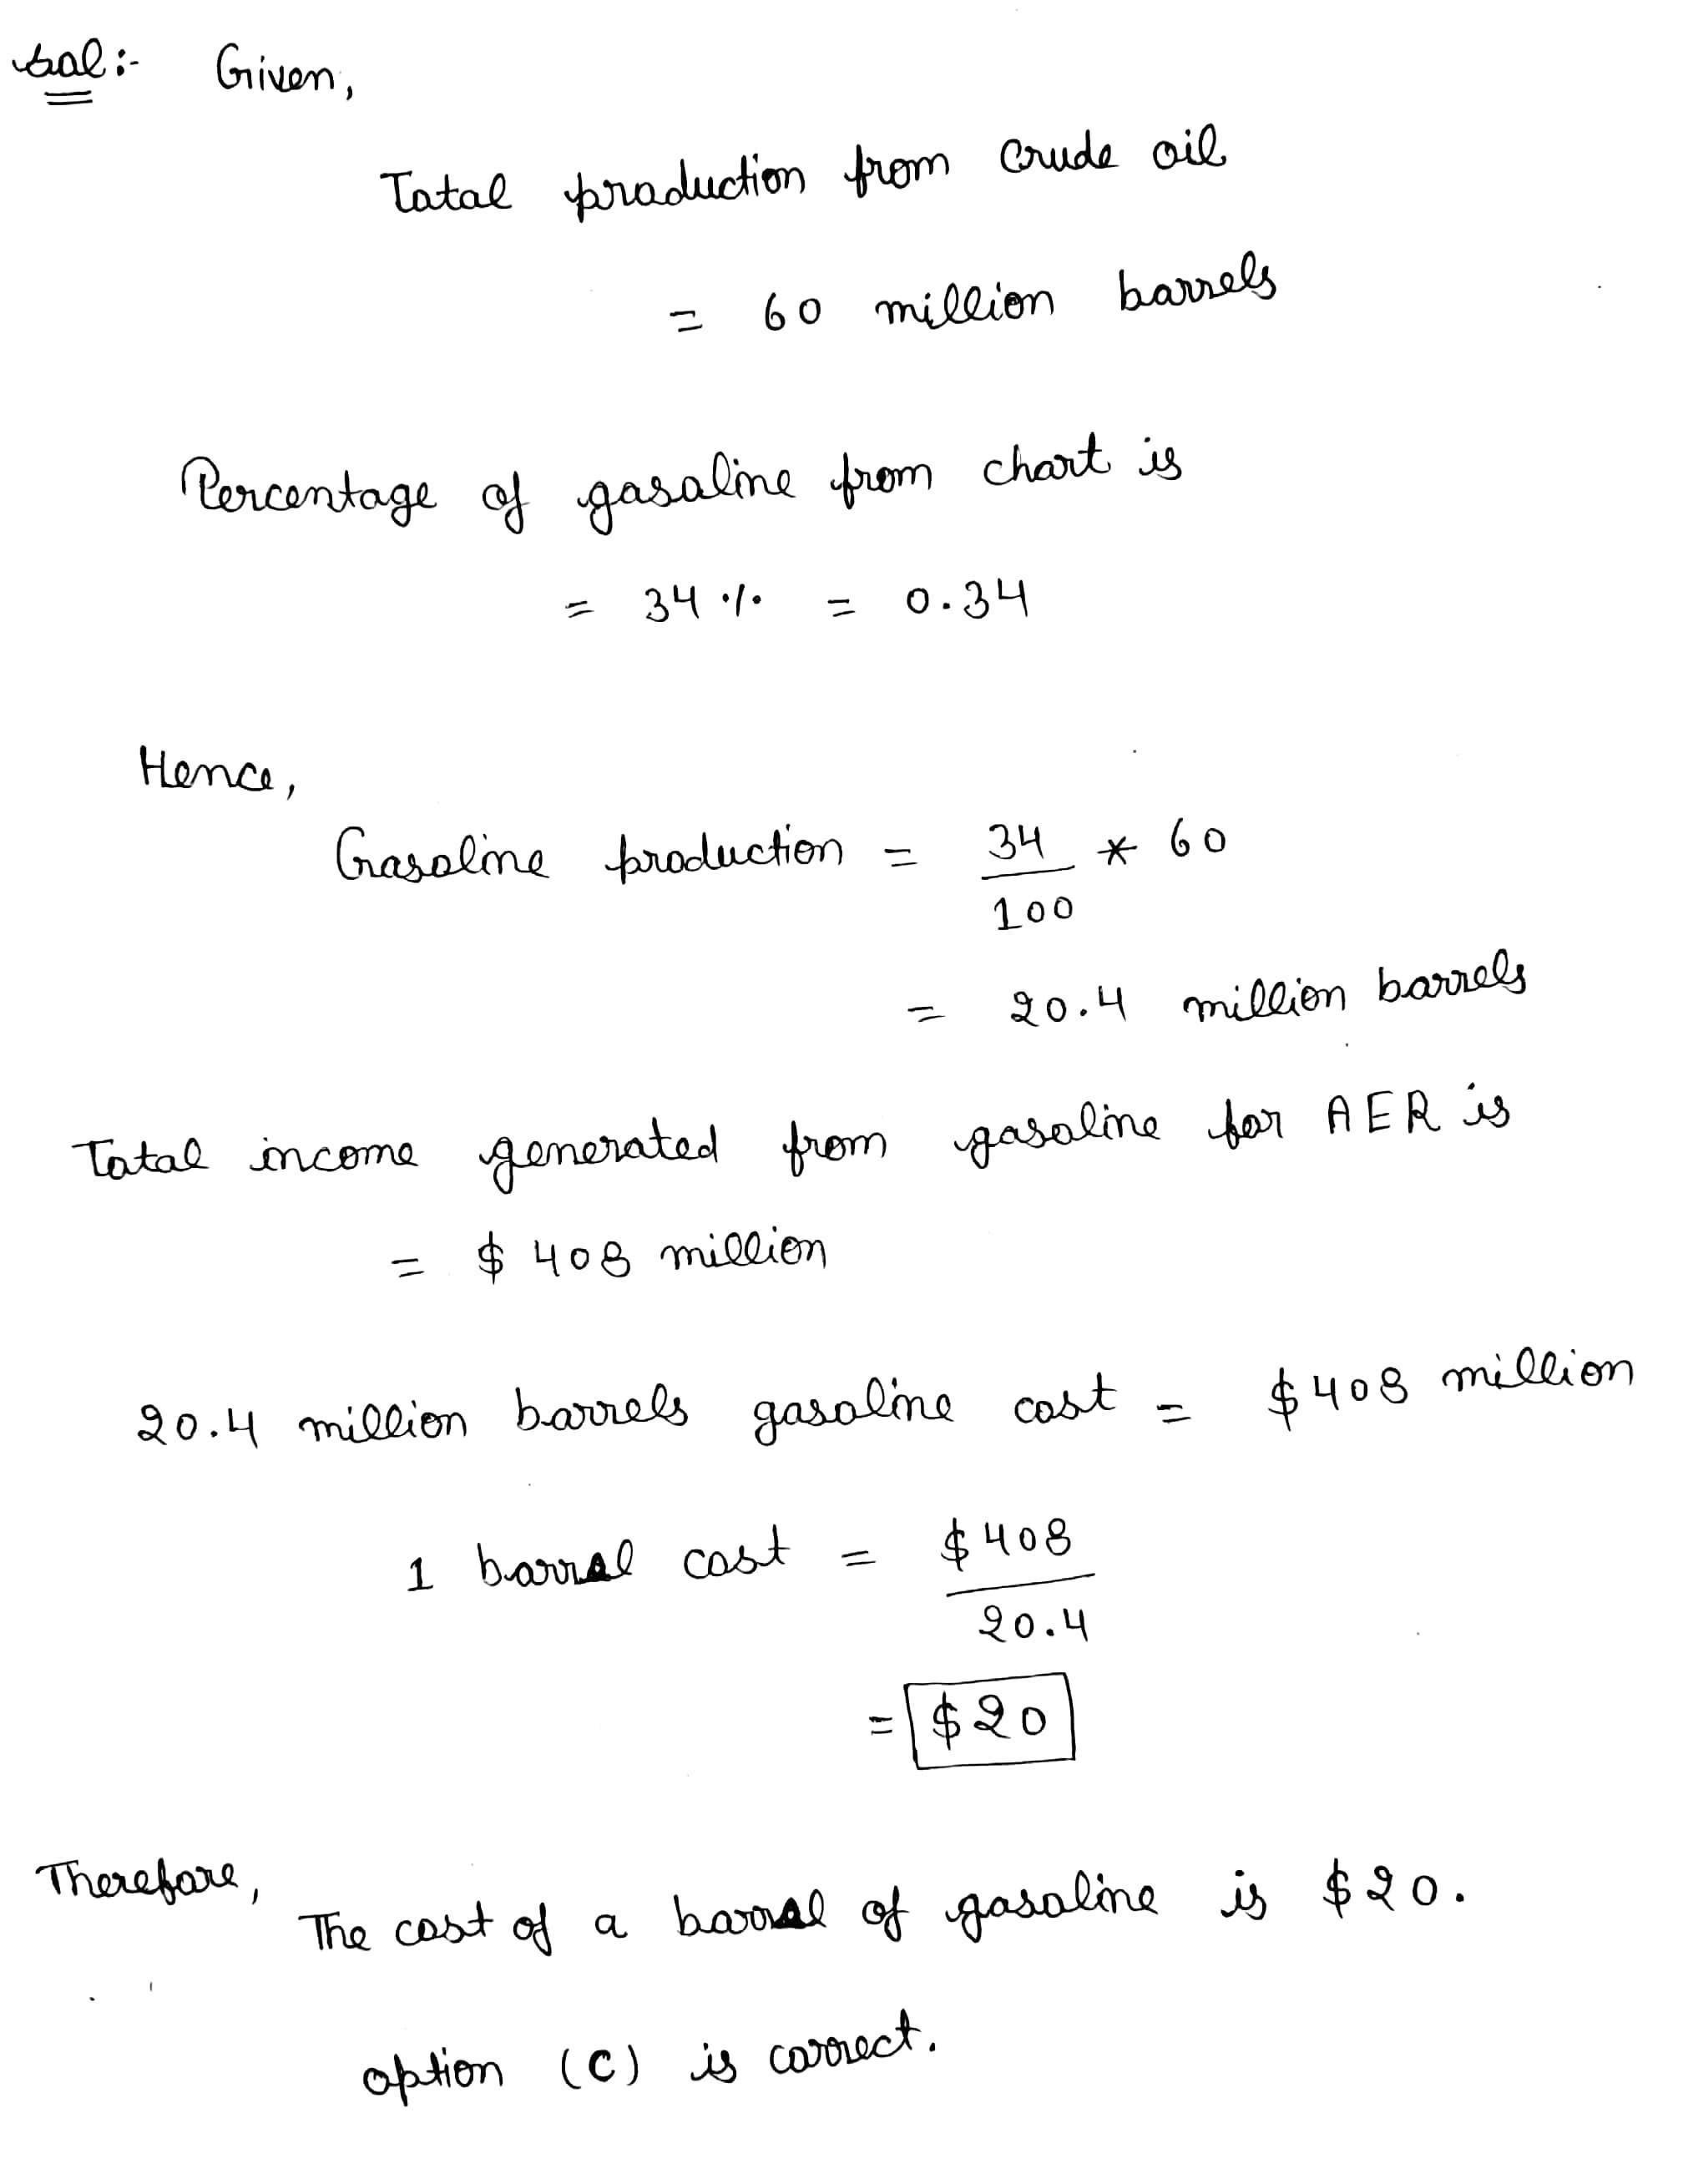 Sol:- Given,
Total production from crude oil
= 60 million barrels
Percentage of gasoline from chart is
= 34 % = 0.34
Hence,
Gasoline production = 34/100 * 60
= 20.4 million barrels
Total income generated from gasoline for AER is
= $ 408 million
20.4 million barrels gasoline cost = $408 million
1 barrel cost = $408/20.4
= $20
Therefore,
The cost of a barrel of gasoline is $20.
option (C) is correct.